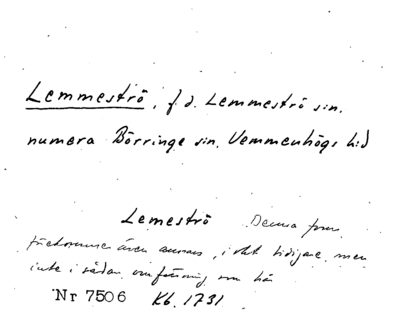 Lemmeströ, f.d. Lemmeströ sn.
numera Börringe sn. Vemmenhögs hd
Lemeströ Denna form
förekommer även annars, i det tidigare, men
inte i sådan omfattning som här
Nr 7506 Kb. 1731